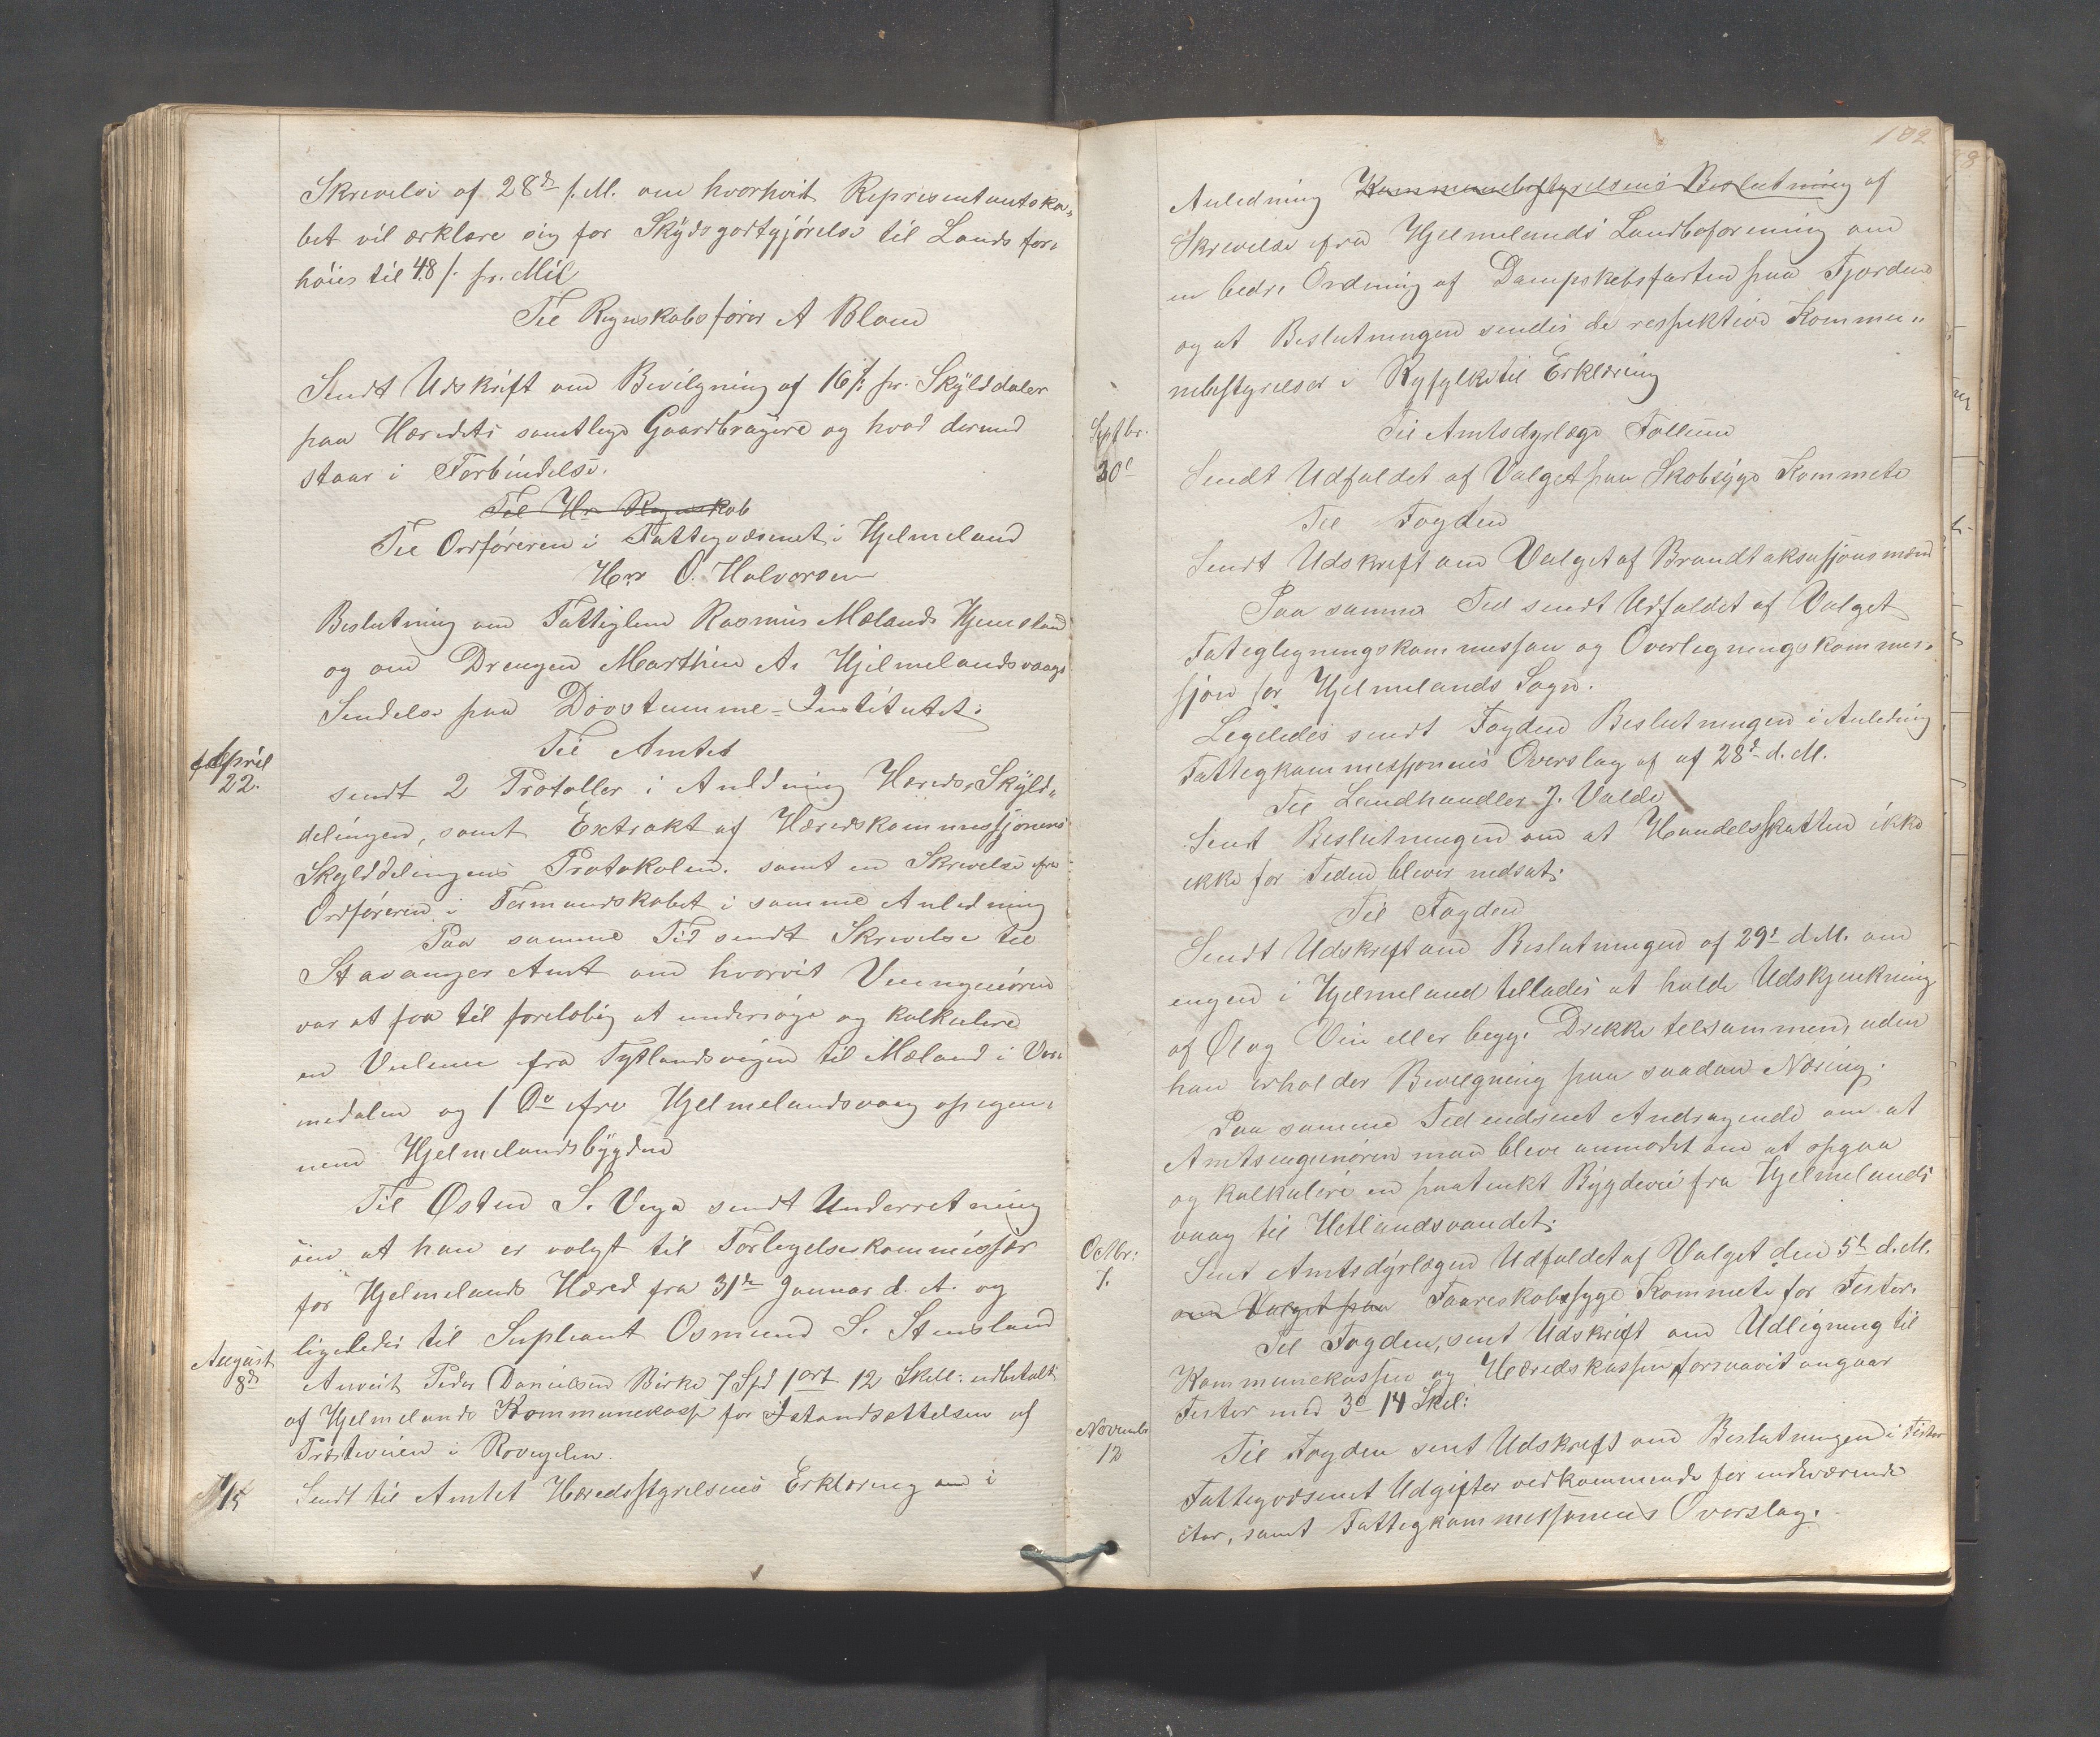 Skrevelse af 28de f. M. om hvorhvit Representantska„
bet vil ærklære sig for Skydsgodtgjørelse til Lands for„
høies til 48 /. pr. Mil
Til Regnskabsfører A Bland
Sendt Udskrift om Bevilgning af 16 /: pr. Skylddaler
paa Heredets samtlege Gaardbrugere og hvad dermed
staar i Forbindelse.
Til Hr Regnskab
Til Ordføreren i Fattegvæsenet i Hjelmeland
Herr O. Halvorsen
Beslutning om Fattiglem Rasmus Mælands Hjemstand
og om Drengen Marthin A. Hjelmelandsvaags
Sendelse paa Døvstumme-Institutet:
April
22.
Til Amtet
sendt 2 Protoller i Anldning Hereds-Skyld„
delingen, samt Extrakt af Heredskommessjonens
Skylddelingens Protokolen. samt en Skrevelse fra
Ordføreren i Formandskabet i samme Anledning
Paa samme Tid sendt Skrevelse til
Stavanger Amt om hvorvit Veiingeniøren
var at faa til foreløbig at undersøge og kalkulere
en Veilinie fra Tytlandsvigen til Mæland i Vor„
medalen og 1 Do fra Hjelmelandsvaag opigjen„
nem Hjelmelandsbygden
Til Østen S. Vega sendt Underretning
om at han er valgt til Forlegelseskommissær
for Hjelmelands Hered fra 31te Januar d. A. og
ligeledes til Supleant Osmund S. Stensland
August
8de
Anvist Peder Danielsen Birke 7 Spd 1 ort 12 Skill: udbetalt
af Hjelmelands Kommunekasse for Istandsettelsen af
Præsteveien i
15
Sendt til Amtet Heredsstyrelsens Erklæring om i
102
Anledning Kommunebestyrelsens Beslutning af
Skrevelse fra Hjelmelands Landboforening om
en bedre Ordning af Dampskibsfarten paa Fjorden
og at Beslutningen sendes de respektive Kommu„
nebestyrelser i Ryfylke til Erklæring
Septbr.
30t
Til Amtsdyrlæge Follum
Sendt Udfaldet af Valget paa Skabsyge Kommete
Til Fogden
Sendt Udskrift om Valget af Brandtaksasjonsmænd
Paa samme Ted sendt Udfaldet af Valget
Fateglegningskommessjon og Overlegningskommes„
sjon for Hjelmelands Sogn.
Legeledes sendt Fogden Beslutningen i Anledning
Fattegkommessjonens Overslag af af 28de d. M.
Til Landhandler J. Valde
Sendt Beslutningen om at Handelsskatten ikke
ikke for Tiden blever nedsat:
Til Fogden
Sendt Udskrift om Beslutningen af 29de d. M. om
ingen i Hjelmeland tellades at holde Udskjenkning
af Øl og Vin eller begge Drekke telsammen, uden
han erholder Bevelgning paa saadan Næring.
Paa samme Ted endsent Andragende om at
Amtsingeniøren maa bleve anmodet om at opgaa
og kalkulere en paatenkt Bygdevei fra Hjelmelands
vaag til Hetlandsvandet:
Octbr:
7.
Sent Amtsdyrlægen Udfaldet af Valget den 5t d. M.
om Valget paa Faareskabssyge Kommete for Fester.
Til Fogden, sent Udskrift om Udligning til
Kommunekassen og Heredskassen forsaavit angaar
Fester med 3d 14 Skil:
Novembr
12
Til Fogden sent Udskreft om Beslutningen i Fister
Fattegvæsenet Udgifter vedkommende for indeværende
Aar, samt Fattegkommessjonens Overslag.